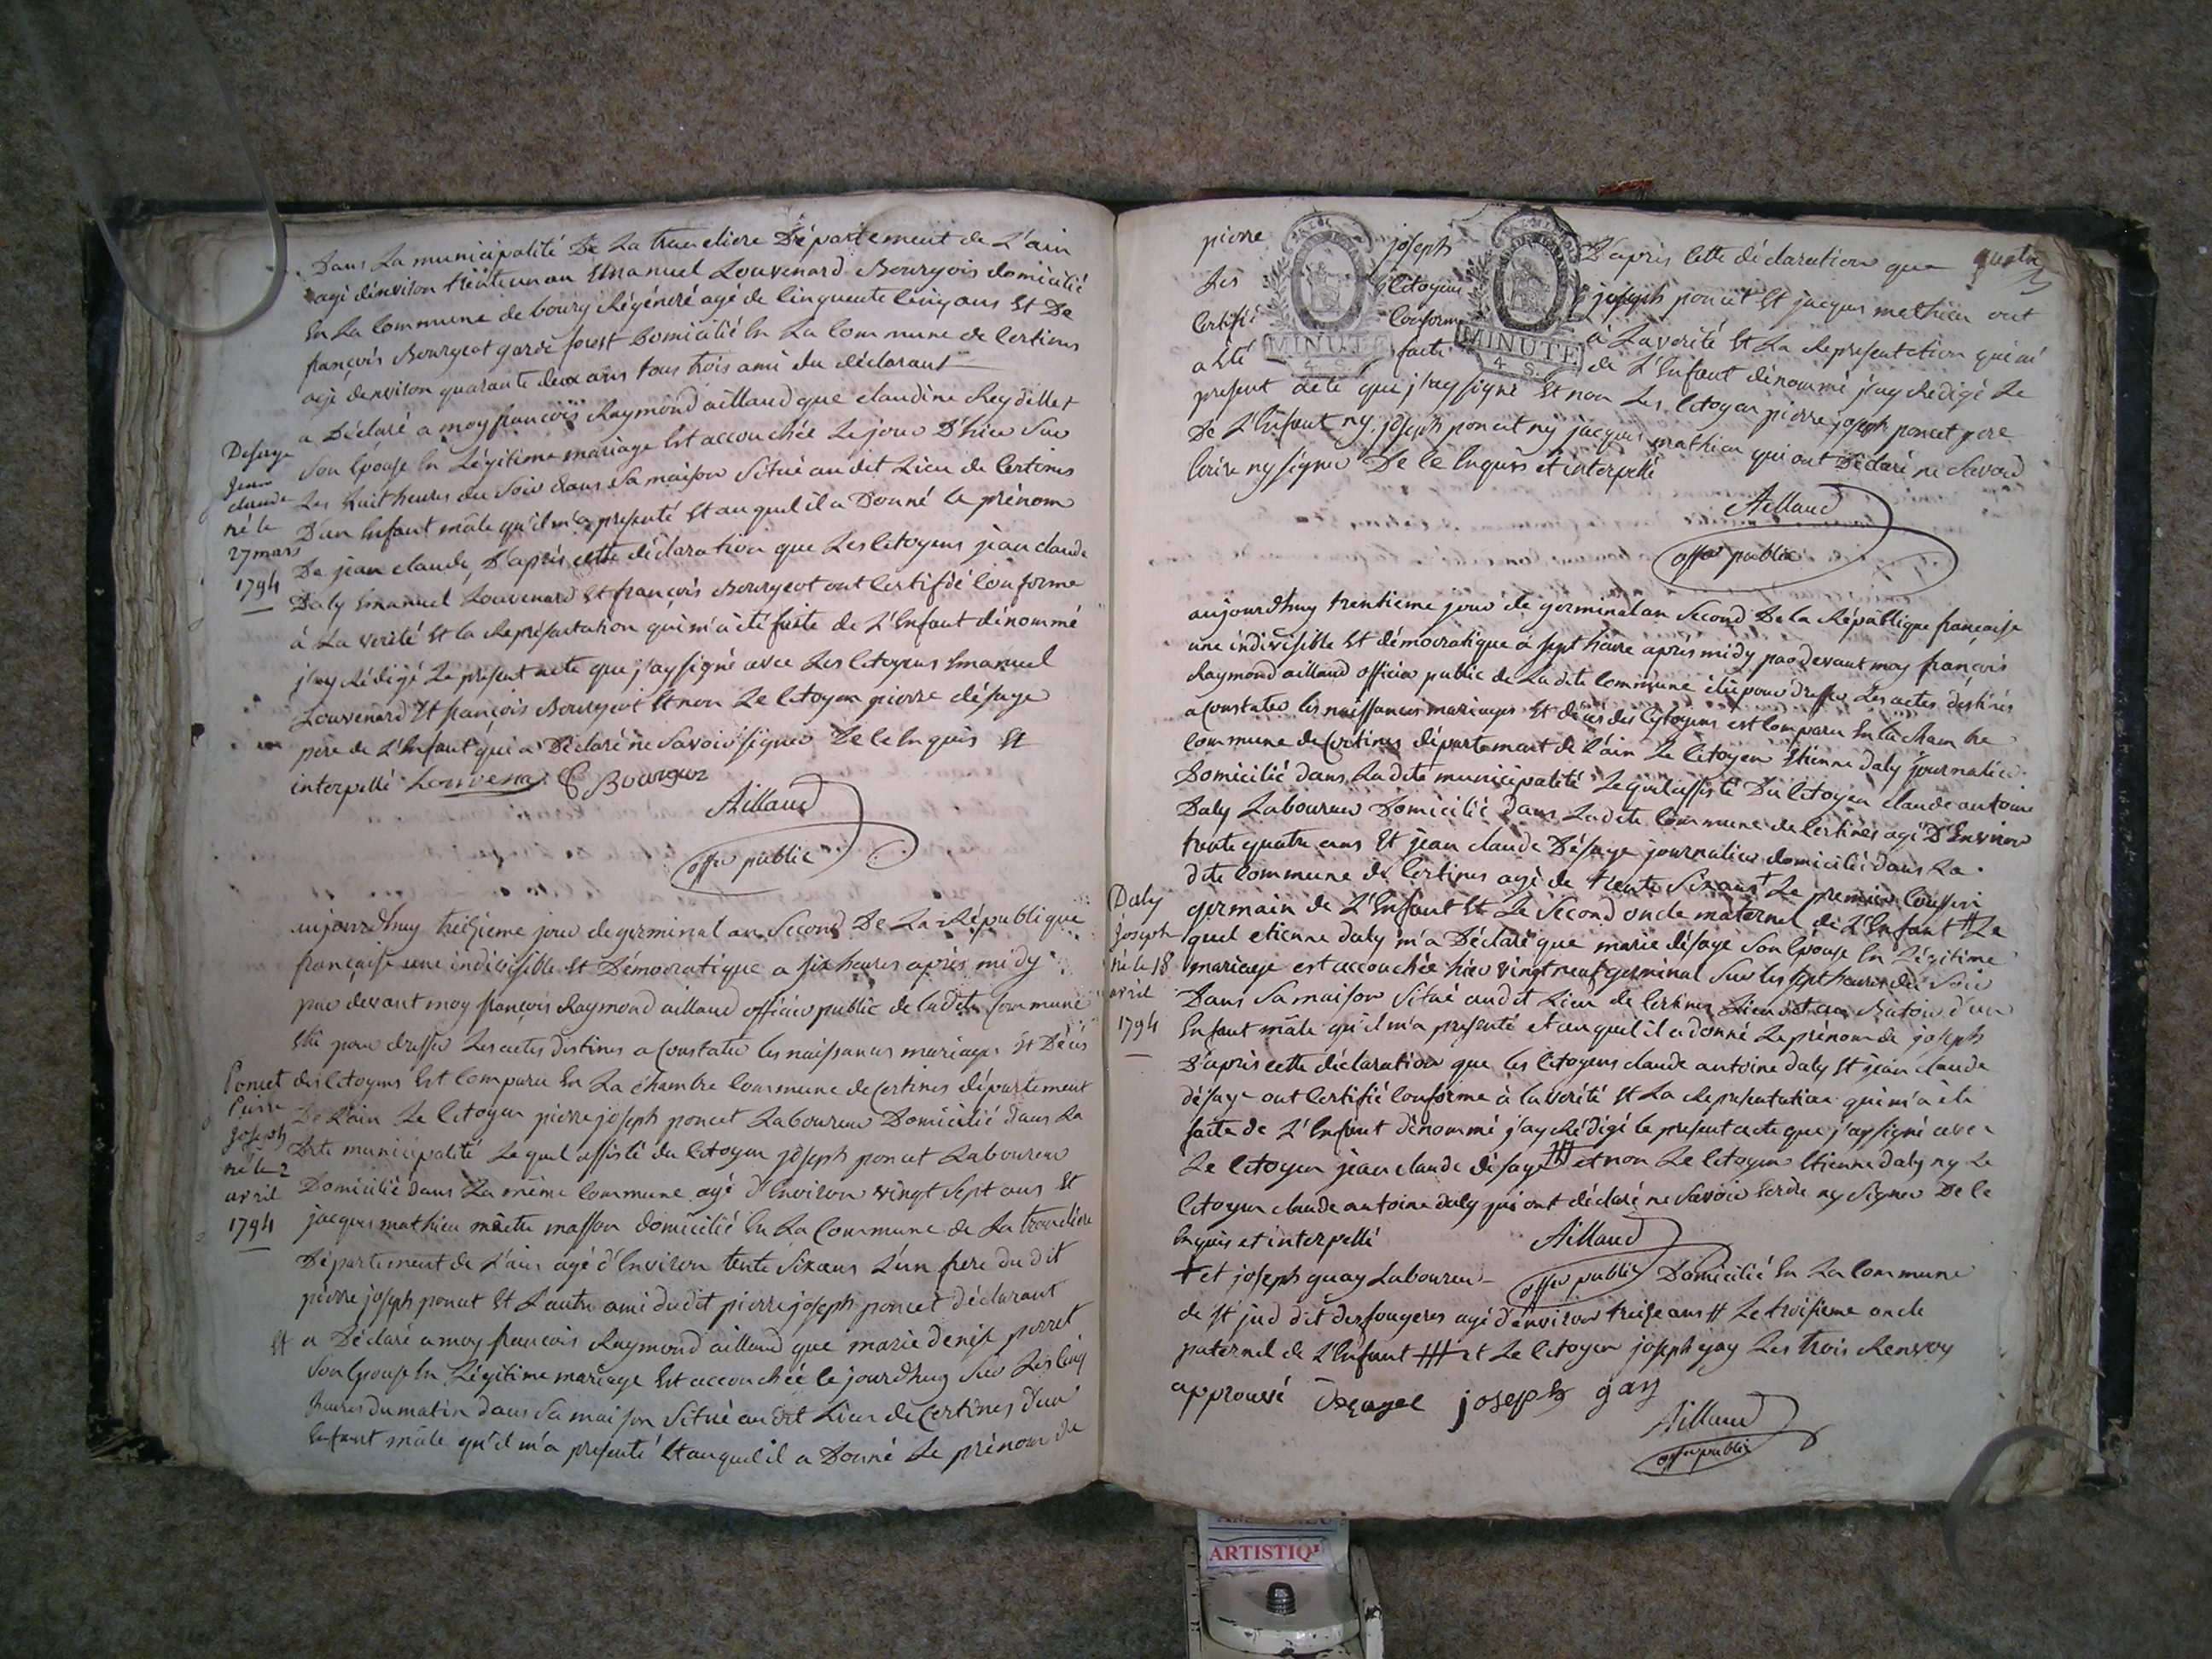 Dans La municipalité De La trancliere Département de L'ain
agé d'environ trente un an Emanuel Louvenard Bourgois domicilié
En La Commune de bourg Régénéré agé de Cinquente Cinq ans Et De
françois Bourgeot garde forest Domicilié En La Commune de Certines
agé denviron quarante deux ans tous trois ami du déclarant
a Déclaré a moy françois Raymond aillaud que claudine Reydellet
Son Epouse En Légitime mariage Est accouchée Le jour D'hier Sur
Les huit heures du Soir dans Sa maison Situé au dit Lieu de Certines
D'un Enfant mâle qu'il m'a presenté Et au quel il a Donné Le prénom
De jean claude, D'après cette déclaration que Les Citoyens jean claude
Daly Emanuel Louvenard Et françois Bourgeot ont Certifié Conforme
à La verité Et la Représentation qui m'a été faite de L'Enfant dénommé
j'ay Rédigé Le present acte que j'ay signé avec Les Citoyens Emanuel
Louvenard Et françois Bourgeot Et non Le Citoyen pierre désage
père de L'Enfant qui a Déclaré ne Savoir signer De Ce Enquis Et
interpellé Louvenar C Bourgoz
Aillaud
offier public
Desage
jean
claude
né le
27 mars
1794
aujourd'huy treizieme jour de germinal an Second De La République
française une indivisible Et Démocratique a six heures après midy
par devant moy françois Raymond aillaud officier public de ladite Commune
Elû pour dresser Les actes destines a Constater les naissances mariages Et Décès
des Citoyens Est Comparu En La chambre Commune de Certines département
De L'ain Le Citoyen pierre joseph poncet Laboureur Domicilié dans La
Dite municipalité Le quel assisté du Citoyen joseph poncet Laboureur
Domicilié dans La même Commune agé d'Environ vingt Sept ans Et
jacques mathieu maitre masson domicilié En La Commune de La trancliere
Département de L'ain agé d'Environ tente Six ans L'un frere du dit
pierre joseph poncet Et L'autre ami du dit pierre joseph poncet déclarant
# a Déclaré a moy françois Raymond aillaud que marie denise perret
Son Epouse En Légitime mariage Est accouchée Ce jourd'huy Sur Les Cinq
heures du matin dans Sa maison Situé au dit Lieu de Certines d'un
Enfant mâle qu'il m'a presenté Et au quel il a Donné Le prénom de
Poncet
Peirre
Joseph
né le 2
avril
1794
pierre joseph D'après Cette déclaration que
Les Citoyens joseph poncet Et jacques mathieu ont
Certifié Conforme à La verité Et La Representation qui m'
a Eté faite de L'Enfant dénommé j'ay Rédigé Le
MINUTE
4 S.
MINUTE
4 S.
present acte que j'ay signé Et non Les Citoyen pierre joseph poncet pere
De L'Enfant ny joseph poncet ny jacques mathieu qui ont Déclaré ne Savoir
Ecrire ny signer De Ce Enquis et interpellé
Aillaud
offier public
aujourd'huy trentieme jour de germinal an Second De la République française
une indivisible Et démocratique à sept heure après midy par devant moy françois
Raymond aillaud officier public de La dite Commune élû pour dresser Les actes destinés
a Constater les naissances mariages Et décès des Citoyens est Comparu En la chambre
Commune de Certines département de L'ain Le Citoyen Etienne daly journalier
Domicilié dans La dite municipalité Le quel assisté Du Citoyen claude antoine
Daly Laboureur Domicilié dans La dite Commune de Certines agé D'Environ
trente quatre ans Et jean claude Désage journalier domicilié dans La
dite Commune de Certines agé de trente Six ans + Le premier Coussin
germain de L'Enfant Et Le Second oncle maternel de L'Enfant # Le
quel etienne daly m'a Déclaré que marie désage Son Epouse En Légitime
mariage est accouchée hier vingt neuf germinal Sur les sept heures du Soir
Dans Sa maison Situé au dit Lieu de Certines Lieu dit au d'un
Enfant mâle qu'il m'a presenté et au quel il a donné Le prénom de joseph
D'après cette déclaration que les Citoyens claude antoine daly Et jean claude
désage ont Certifié Conforme à la verité Et La Representation qui m'a été
faite de L'Enfant dénommé j'ay Rédigé le present acte que j'ay signé avec
Le Citoyen jean claude désage ### et non Le Citoyen Etienne daly ny Le
Citoyen claude antoine daly qui ont déclaré ne Savoir Ecrire ny signer De Ce
Enquis et interpellé Aillaud
offier public
+ et joseph guay Laboureur Domicilié En La Commune
de St jud dit desfougeres agé d'environ treise ans # Le troisieme oncle
paternel de L'Enfant ### et Le Citoyen joseph gay Les trois Renvoy
approuvé Desagee joseph gay
Aillaud
offier public
Daly
Joseph
né le 18
avril
1794
ARTISTIQ